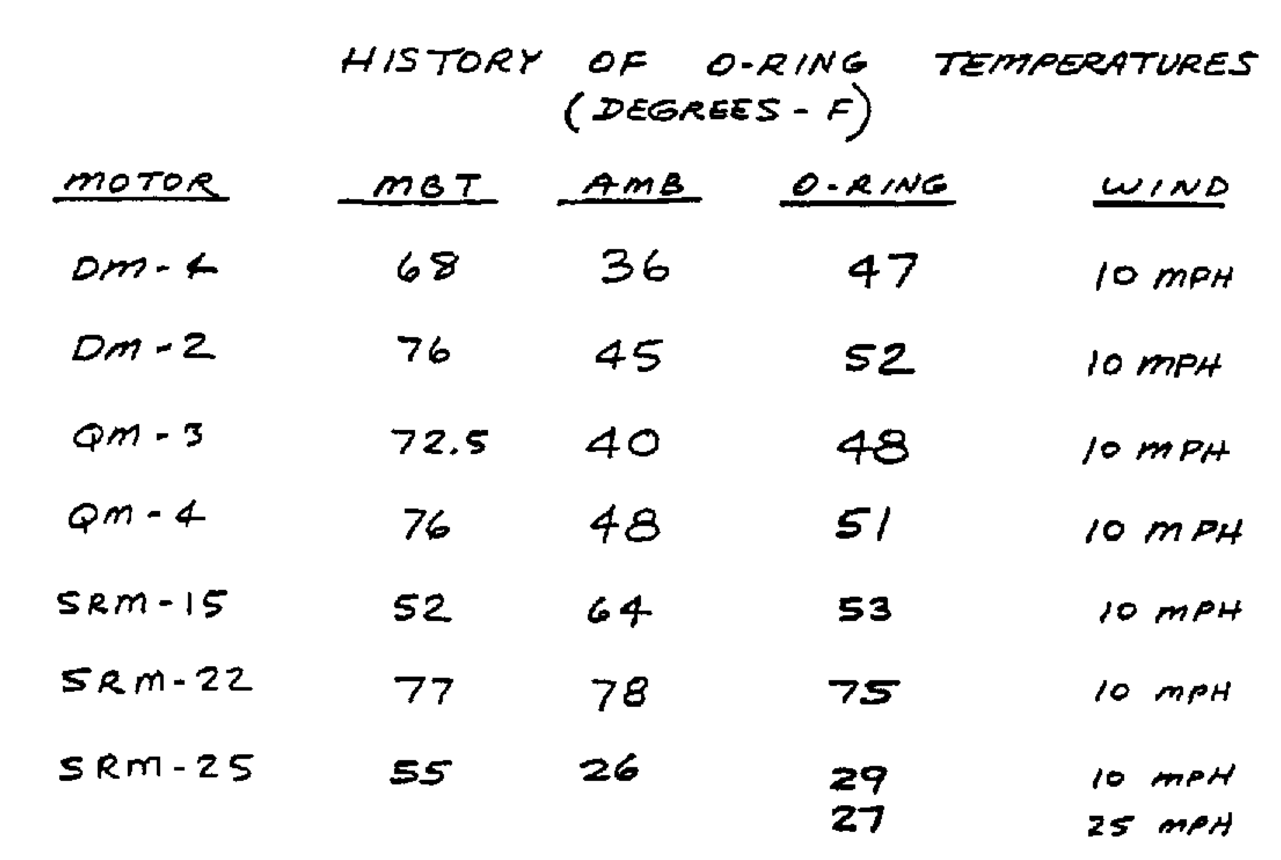 HISTORY OF O-RING TEMPERATURES
(DEGREES - F)
MOTOR MBT AMB O-RING WIND
DM-4 68 36 47 10 MPH
DM-2 76 45 52 10 MPH
QM-3 72.5 40 48 10 MPH
QM-4 76 48 51 10 MPH
SRM-15 52 64 53 10 MPH
SRM-22 77 78 75 10 MPH
SRM-25 55 26 29 10 MPH
27 25 MPH